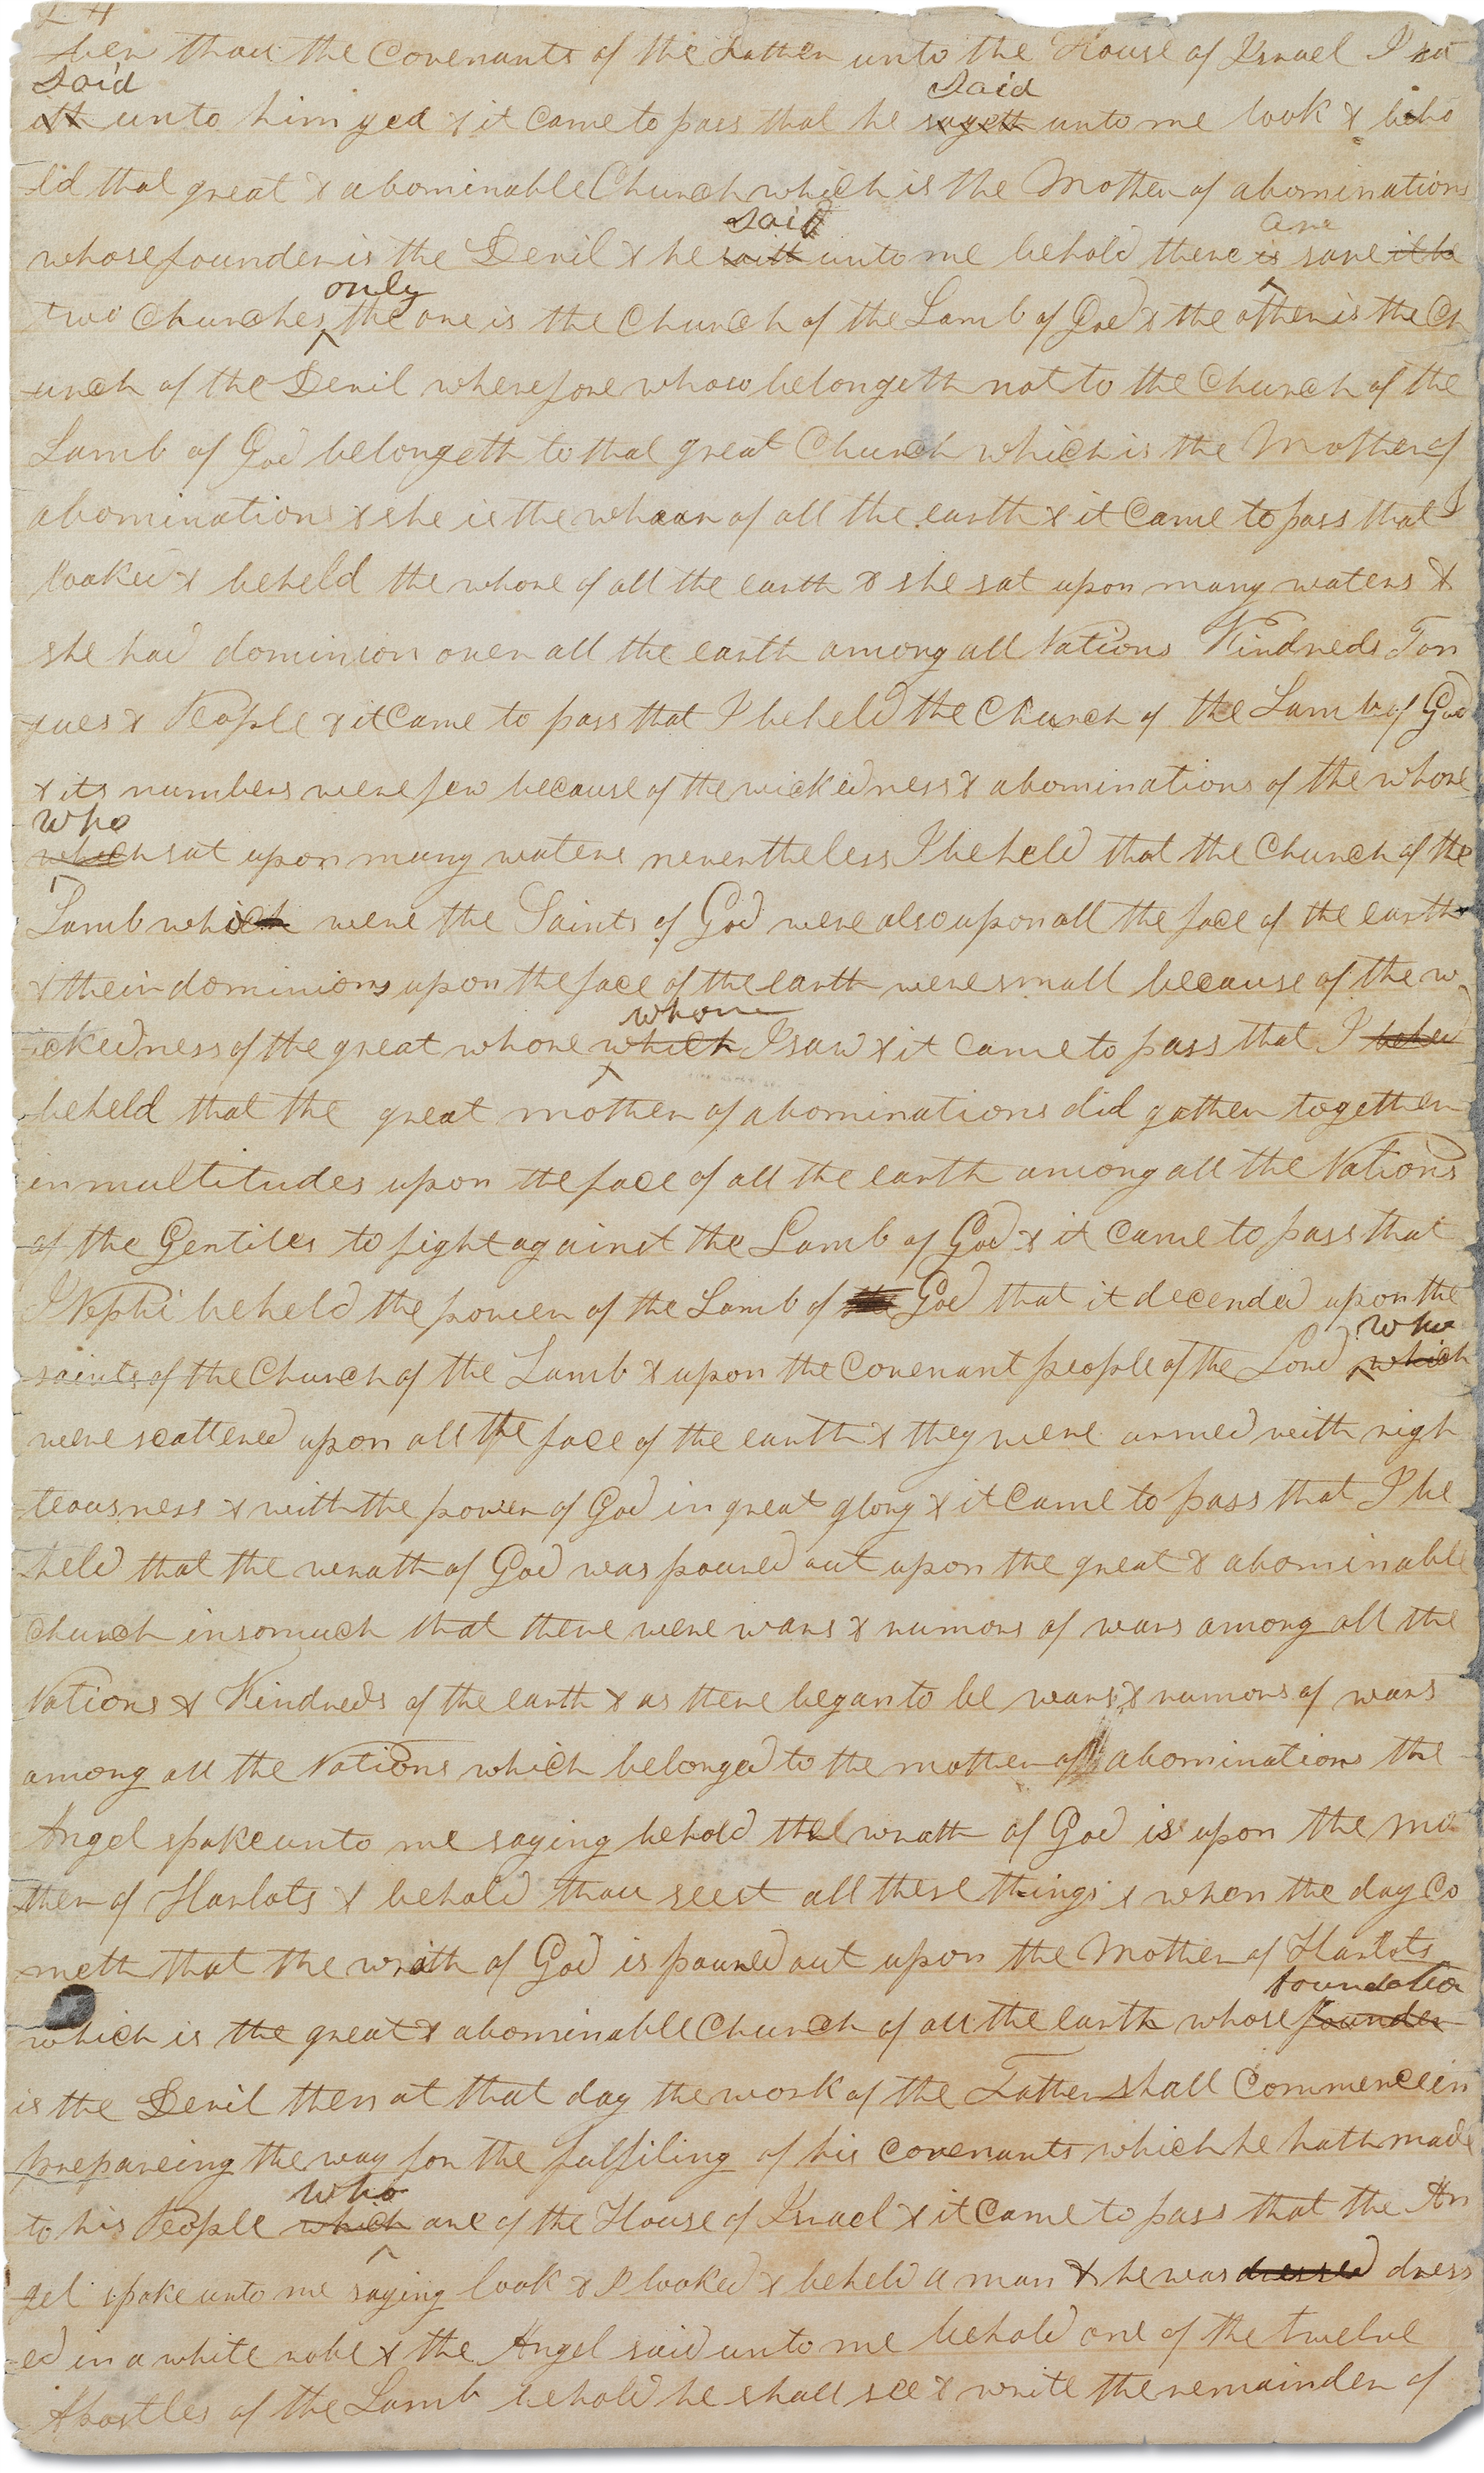 24
ber thou the Covenants of the Father unto the House of Israel I sa
said
ith unto him yea & it Came to pass that he sayeth said unto me look & beho
ld that great & abominable Church which is the Mother of abominations
whose founder is the Devil & he saith said unto me behold there is are save it be
two Churches only the one is the Church of the Lamb of God & the other is the Ch
urch of the Devil wherefore whoso belongeth not to the Church of the
Lamb of God belongeth to that great Church which is the Mother of
abominations & she is the whoar of all the earth & it Came to pass that I
looked & beheld the whore of all the earth & she sat upon many waters &
she had dominion over all the earth among all Nations Kindreds Ton
gues & People & it Came to pass that I beheld the Church of the Lamb of God
& its numbers were few because of the wickedness & abominations of the whore
who
which sat upon many waters nevertheless I beheld that the Church of the
Lamb which were the Saints of God were also upon all the face of the earth
& their dominions upon the face of the earth were small because of the w
ickedness of the great whore which whom I saw & it Came to pass that I behed
beheld that the great mother of abominations did gather together
in multitudes upon the face of all the earth among all the Nations
of the Gentiles to fight against the Lamb of God & it Came to pass that
I Nephi beheld the power of the Lamb of the God that it decended upon the
saints of the Church of the Lamb & upon the Covenant people of the Lord which who
were scattered upon all the face of the earth & they were armed with righ
teousness & with the power of God in great glory & it Came to pass that I be
held that the wrath of God was poured out upon the great & abominable
Church insomuch that there were wars & rumors of wars among all the
Nations & Kindreds of the earth & as there began to be wars & rumors of wars
among all the Nations which belonged to the mother of abominations the
Angel spake unto me saying behold the wrath of God is upon the mo
ther of Harlots & behold thou seest all these things & when the day Co
meth that the wrath of God is poured out upon the Mother of Harlots
which is the great & abominable Church of all the earth whose founder foundatio
is the Devil then at that day the work of the Father shall Commence in
prepareing the way for the fulfiling of his Covenants which he hath made
to his People which who are of the House of Israel & it Came to pass that the An
gel spake unto me saying look & I looked & beheld a man & he was dressed dress
ed in a white robe & the Angel said unto me behold one of the twelve
Apostles of the Lamb behold he shall see & write the remainder of